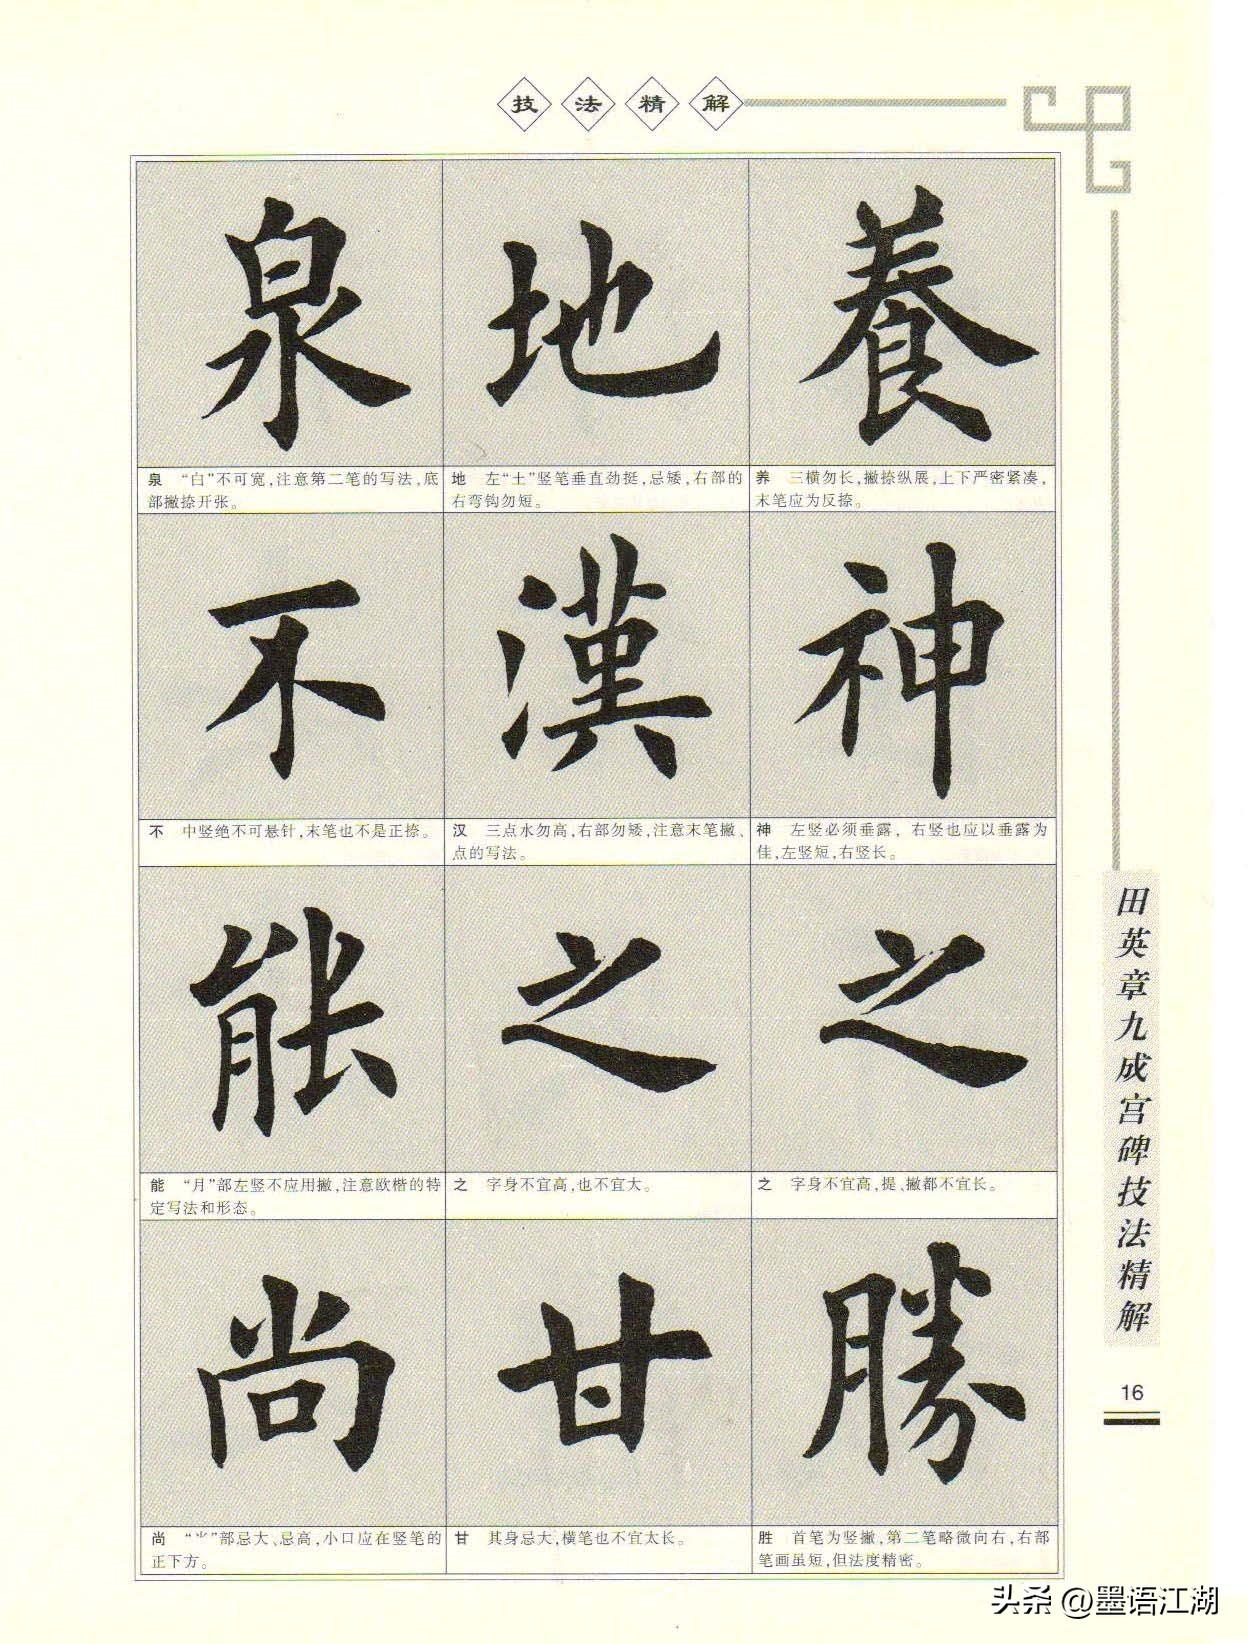 技法精解
泉 地 養
泉 “白”不可宽,注意第二笔的写法,底
部撇捺开张。
地 左“土”竖笔垂直劲挺,忌矮,右部的
右弯钩勿短。
养 三横勿长,撇捺纵展,上下严密紧凑,
末笔应为反捺。
不 漢 神
不 中竖绝不可悬针,末笔也不是正捺。
汉 三点水勿高,右部勿矮,注意末笔撇、
点的写法。
神 左竖必须垂露,右竖也应以垂露为
佳,左竖短,右竖长。
能 之 之
能 “月”部左竖不应用撇,注意欧楷的特
定写法和形态。
之 字身不宜高,也不宜大。
之 字身不宜高,提、撇都不宜长。
尚 甘 勝
尚 “⺌”部忌大、忌高,小口应在竖笔的
正下方。
甘 其身忌大,横笔也不宜太长。
胜 首笔为竖撇,第二笔略微向右,右部
笔画虽短,但法度精密。
田英章九成宫碑技法精解
16
头条 @墨语江湖